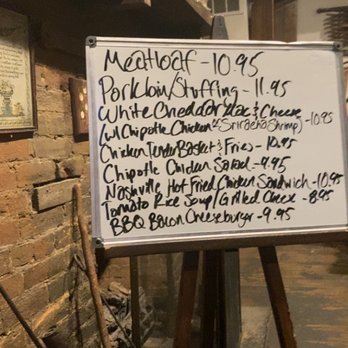 Meatloaf - 10.95
Porkloin/Stuffing - 11.95
White Cheddar Mac & Cheese
(w/ Chipotle Chicken or Sriracha Shrimp) - 10.95
Chicken Tender Basket & Fries - 10.95
Chipotle Chicken Salad - 9.95
Nashville Hot Fried Chicken Sandwich - 10.95
Tomato Rice Soup/Grilled Cheese - 8.95
BBQ Bacon Cheeseburger - 9.95